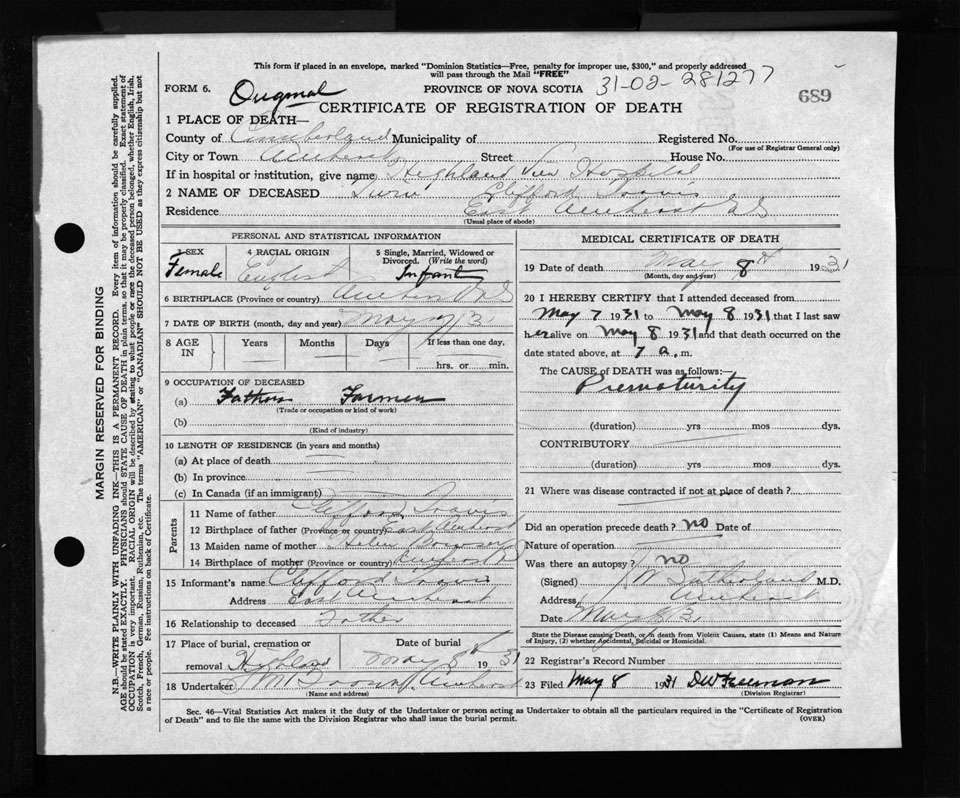 This form if placed in an envelope, marked "Dominion Statistics—Free, penalty for improper use, $300," and properly addressed
will pass through the Mail "FREE"
FORM 6. Original PROVINCE OF NOVA SCOTIA 31-02-281277 689
CERTIFICATE OF REGISTRATION OF DEATH
1 PLACE OF DEATH—
County of Cumberland Municipality of Registered No.
(For use of Registrar General only)
City or Town Amherst Street House No.
If in hospital or institution, give name Highland View Hospital
2 NAME OF DECEASED Clifford Travis
Residence East Amherst NS
(Usual place of abode)
PERSONAL AND STATISTICAL INFORMATION
3 SEX 4 RACIAL ORIGIN 5 Single, Married, Widowed or
Divorced. (Write the word)
Female English Infant
6 BIRTHPLACE (Province or country) Amherst NS
7 DATE OF BIRTH (month, day and year) May
8 AGE IN Years Months Days If less than one day,
hrs. or min.
9 OCCUPATION OF DECEASED
(a) Father Farmer
(Trade or occupation or kind of work)
(b)
(Kind of industry)
10 LENGTH OF RESIDENCE (in years and months)
(a) At place of death
(b) In province
(c) In Canada (if an immigrant)
Parents
11 Name of father Clifford Travis
12 Birthplace of father (Province or country) East Amherst
13 Maiden name of mother Helen
14 Birthplace of mother (Province or country)
15 Informant's name Clifford Travis
Address East Amherst
16 Relationship to deceased Father
17 Place of burial, cremation or Date of burial
removal Highland May 8th 1931
18 Undertaker Amherst
(Name and address)
MEDICAL CERTIFICATE OF DEATH
19 Date of death May 8th 1931
(Month, day and year)
20 I HEREBY CERTIFY that I attended deceased from
May 7 1931 to May 8 1931 that I last saw
her alive on May 8 1931 and that death occurred on the
date stated above, at 7 a. m.
The CAUSE OF DEATH was as follows:
Prematurity
(duration) yrs mos dys.
CONTRIBUTORY
(duration) yrs mos dys.
21 Where was disease contracted if not at place of death?
Did an operation precede death? no Date of
Nature of operation
Was there an autopsy? no
(Signed) Sutherland M.D.
Address Amherst
Date May 8/31
State the Disease causing Death, or in death from Violent Causes, state (1) Means and Nature
of Injury, (2) whether Accidental, Suicidal or Homicidal.
22 Registrar's Record Number
23 Filed May 8 1931 DW Freeman
(Division Registrar)
Sec. 46—Vital Statistics Act makes it the duty of the Undertaker or person acting as Undertaker to obtain all the particulars required in the "Certificate of Registration
of Death" and to file the same with the Division Registrar who shall issue the burial permit. (OVER)
MARGIN RESERVED FOR BINDING
N.B.—WRITE PLAINLY WITH UNFADING INK—THIS IS A PERMANENT RECORD. Every item of information should be carefully supplied.
AGE should be stated EXACTLY. PHYSICIANS should STATE CAUSE OF DEATH in plain terms, so that it may be properly classified. Exact statement of
OCCUPATION is very important. RACIAL ORIGIN will be described by stating to what people or race the deceased person belonged, whether English, Irish,
Scotch, French, German, Russian, Ruthenian, etc. The terms "AMERICAN" or "CANADIAN" SHOULD NOT BE USED as they express citizenship but not
a race or people. See instructions on back of Certificate.